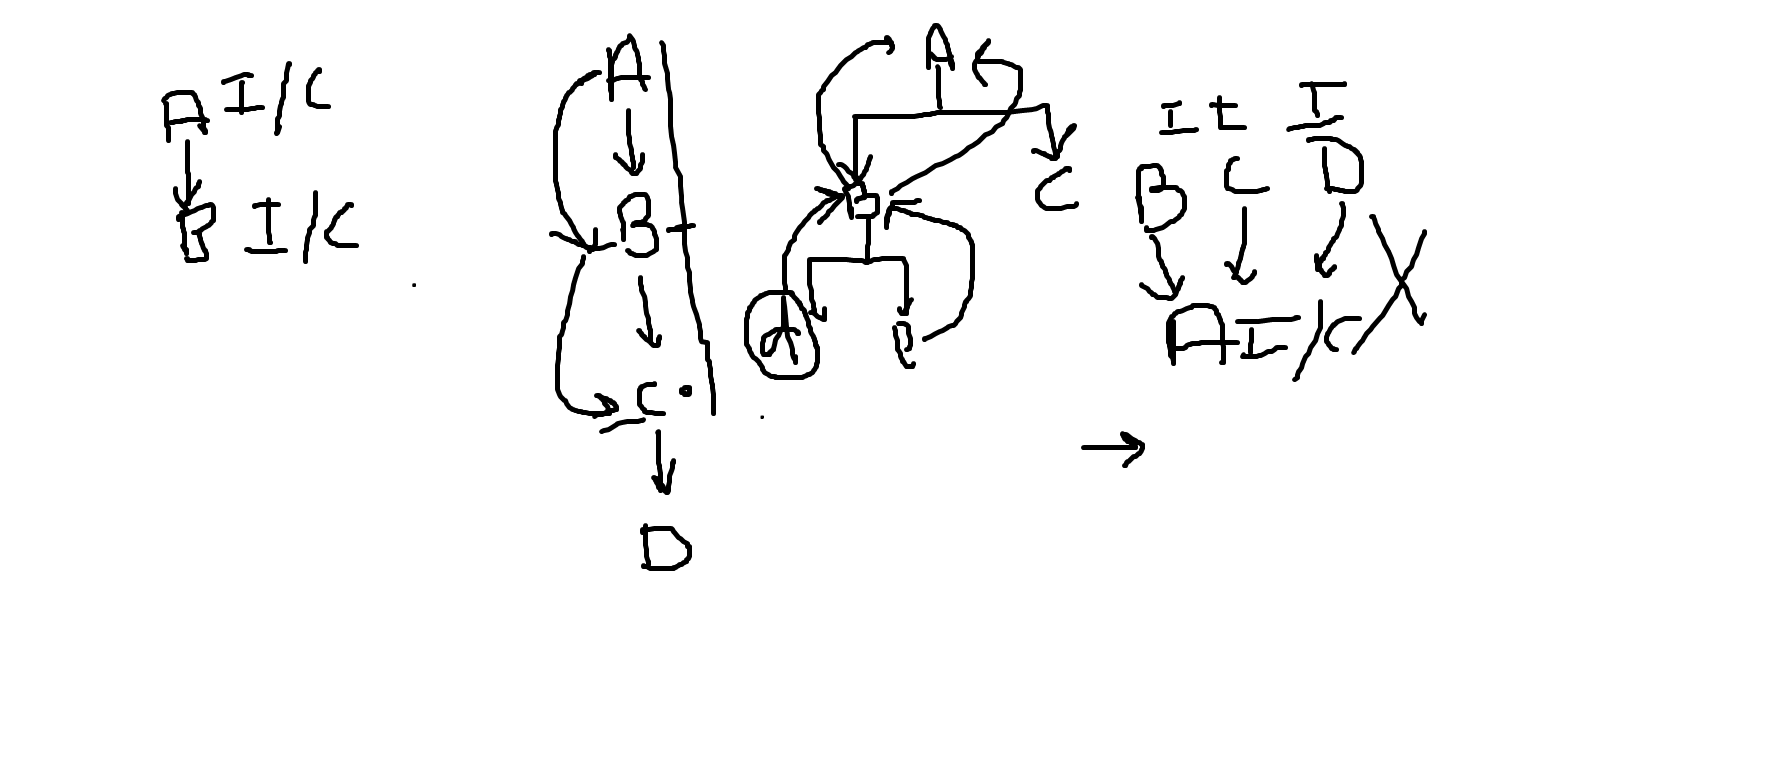 A I/C
B I/C
A
B
C
D
A
B
C
I I
B C D
A I/C